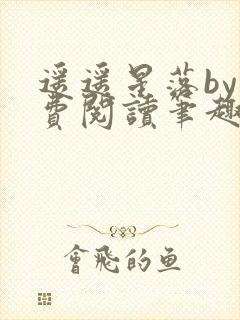 遥遥星落by
費閱讀筆趣
會飛的魚